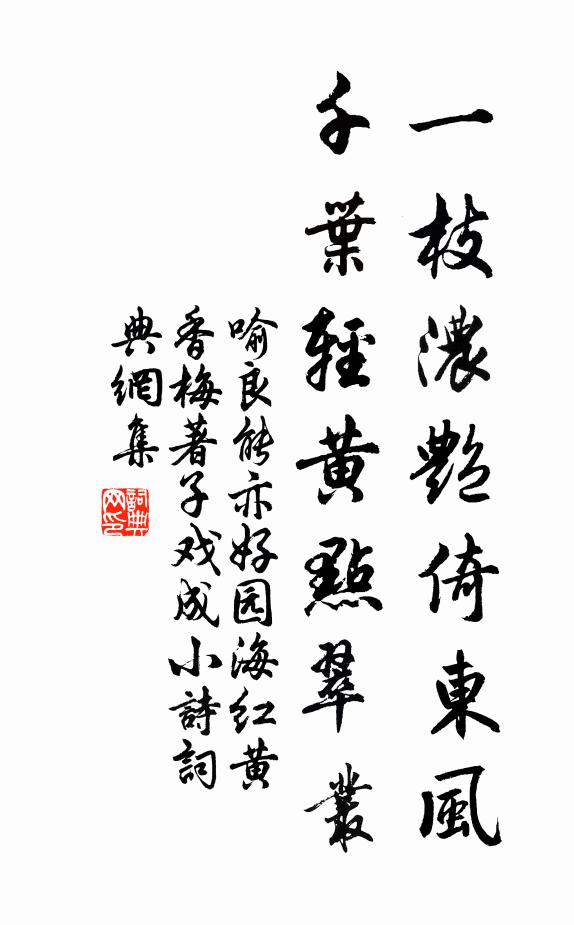 一枝濃艷倚東風
千葉輕黃點翠叢
喻良能亦好园海红黄
香梅著子戏成小詩詞
典網集
詞典网印